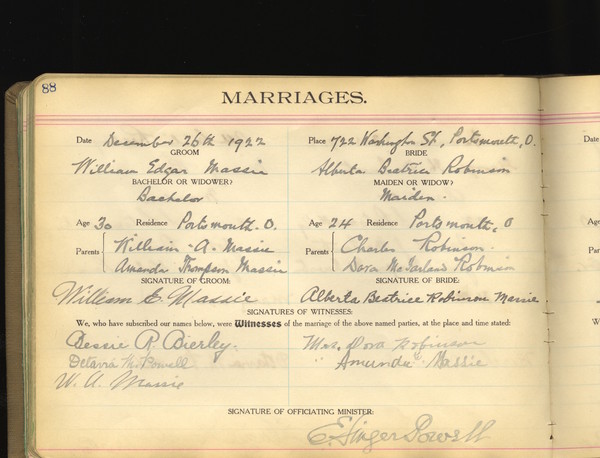 88
MARRIAGES.
Date December 26th 1922 Place 722 Washington St., Portsmouth, O.
GROOM BRIDE
William Edgar Massie Alberta Beatrice Robinson
BACHELOR OR WIDOWER? MAIDEN OR WIDOW?
Bachelor Maiden.
Age 30 Residence Portsmouth. O. Age 24 Residence Portsmouth, O
Parents William A. Massie Parents Charles Robinson.
Amanda Thompson Massie Dora McFarland Robinson
SIGNATURE OF GROOM: SIGNATURE OF BRIDE:
William E. Massie Alberta Beatrice Robinson Massie
SIGNATURES OF WITNESSES:
We, who have subscribed our names below, were Witnesses of the marriage of the above named parties, at the place and time stated:
Bessie R. Bierley. Mrs. Dora Robinson
Powell " Amanda Massie
W. A. Massie
SIGNATURE OF OFFICIATING MINISTER:
E. Powell
Date
Age
Parents
W